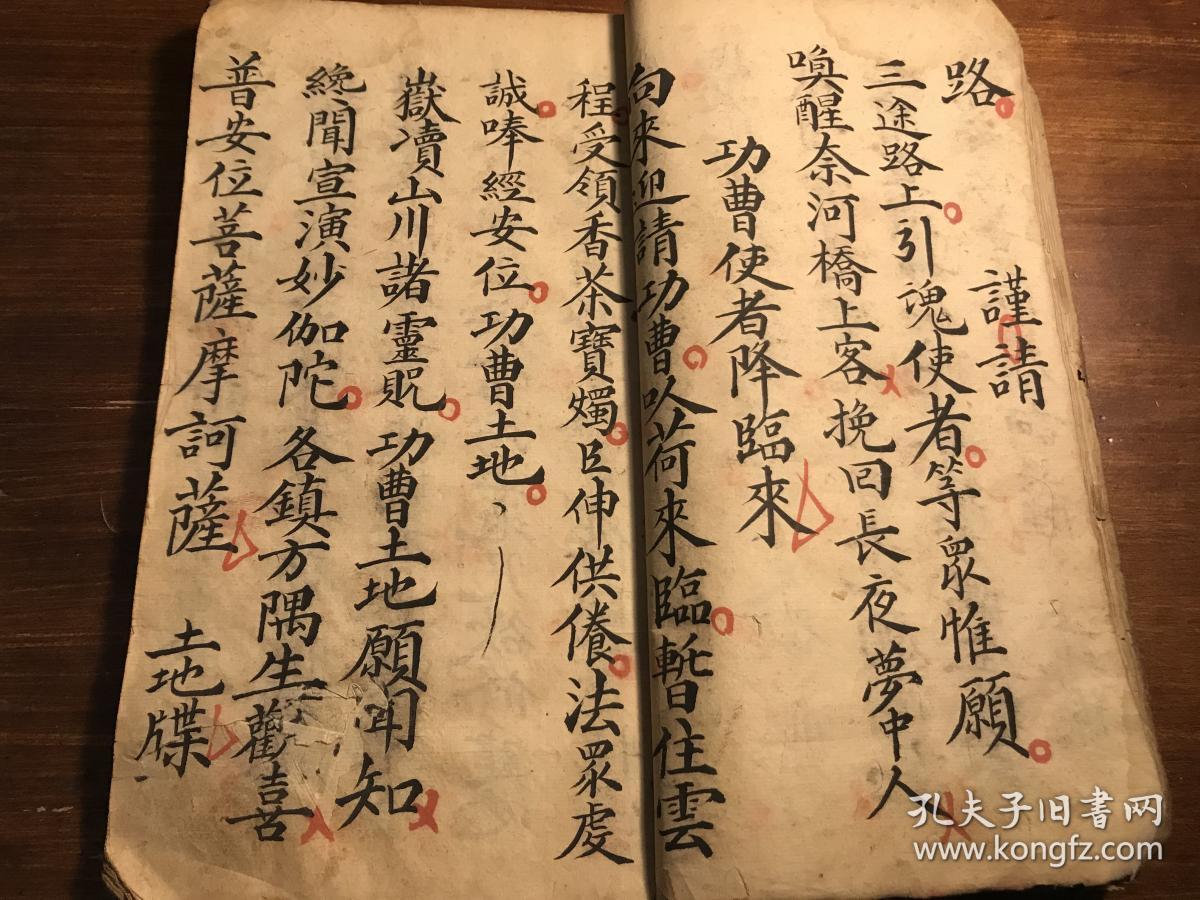 路 謹請
三途路上引魂使者等眾惟願
喚醒奈河橋上客 挽回長夜夢中人
功曹使者降臨來
向來迎請功曹以荷來臨暫住雲
程受領香茶寶燭臣伸供養法眾虔
誠奉經安位功曹土地
嶽瀆山川諸靈貺 功曹土地願聞知
纔聞宣演妙伽陀 各鎮方隅生歡喜
普安位菩薩摩訶薩 土地牒
孔夫子旧书网
www.kongfz.com